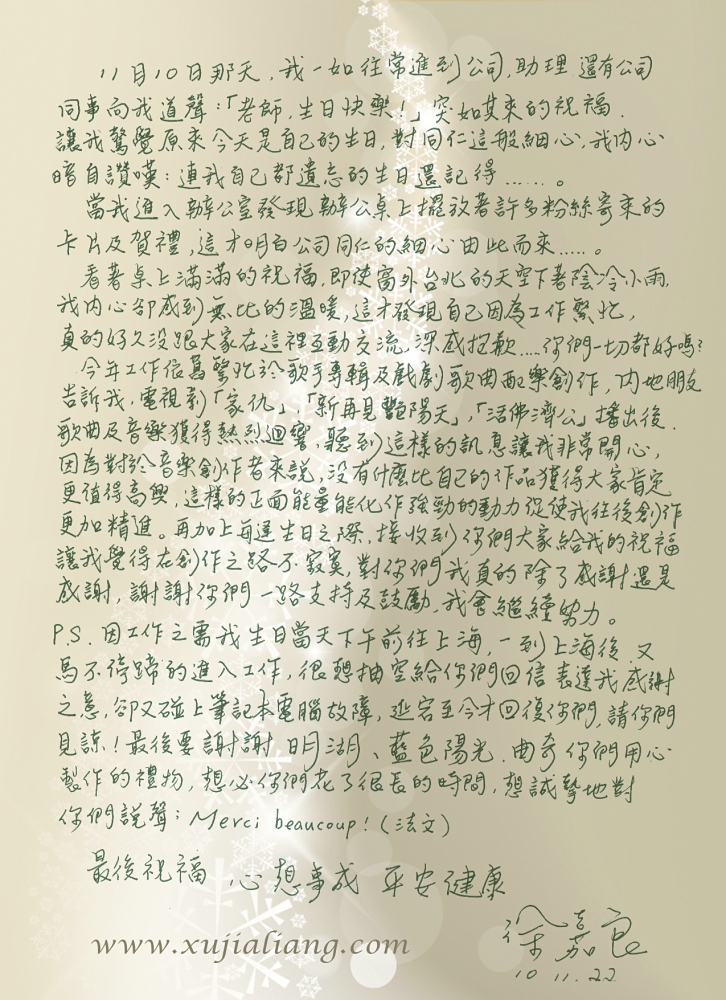 11月10日那天,我一如往常進到公司,助理還有公司
同事向我道聲:「老師,生日快樂!」突如其來的祝福,
讓我驚覺原來今天是自己的生日,對同仁這般細心,我內心
暗自讚嘆:連我自己都遺忘的生日還記得……。
當我進入辦公室發現辦公桌上擺放著許多粉絲寄來的
卡片及賀禮,這才明白公司同仁的細心由此而來…..。
看著桌上滿滿的祝福,即使窗外台北的天空下著陰冷小雨,
我內心卻感到無比的溫暖,這才發現自己因為工作繁忙,
真的好久沒跟大家在這裡互動交流,深感抱歉....你們一切都好嗎?
今年工作依舊繁忙於歌手專輯及戲劇歌曲配樂創作,內地朋友
告訴我,電視劇「家仇」,「新再見艷陽天」,「活佛濟公」播出後,
歌曲及音樂獲得熱烈迴響,聽到這樣的訊息讓我非常開心,
因為對於音樂創作者來說,沒有什麼比自己的作品獲得大家肯定
更值得高興,這樣的正面能量能化作強勁的動力促使我往後創作
更加精進。再加上每逢生日之際,接收到你們大家給我的祝福
讓我覺得在創作之路不寂寞,對你們我真的除了感謝還是
感謝,謝謝你們一路支持及鼓勵,我會繼續努力。
P.S.因工作之需我生日當天下午前往上海,一到上海後,又
馬不停蹄的進入工作,很想抽空給你們回信表達我感謝
之意,卻又碰上筆記本電腦故障,延宕至今才回復你們,請你們
見諒!最後要謝謝,明湖、藍色陽光、曲奇你們用心
製作的禮物,想必你們花了很長的時間,想誠摯地對
你們說聲:Merci beaucoup!(法文)
最後祝福,心想事成 平安健康
徐嘉良
10.11.22
www.xujialiang.com